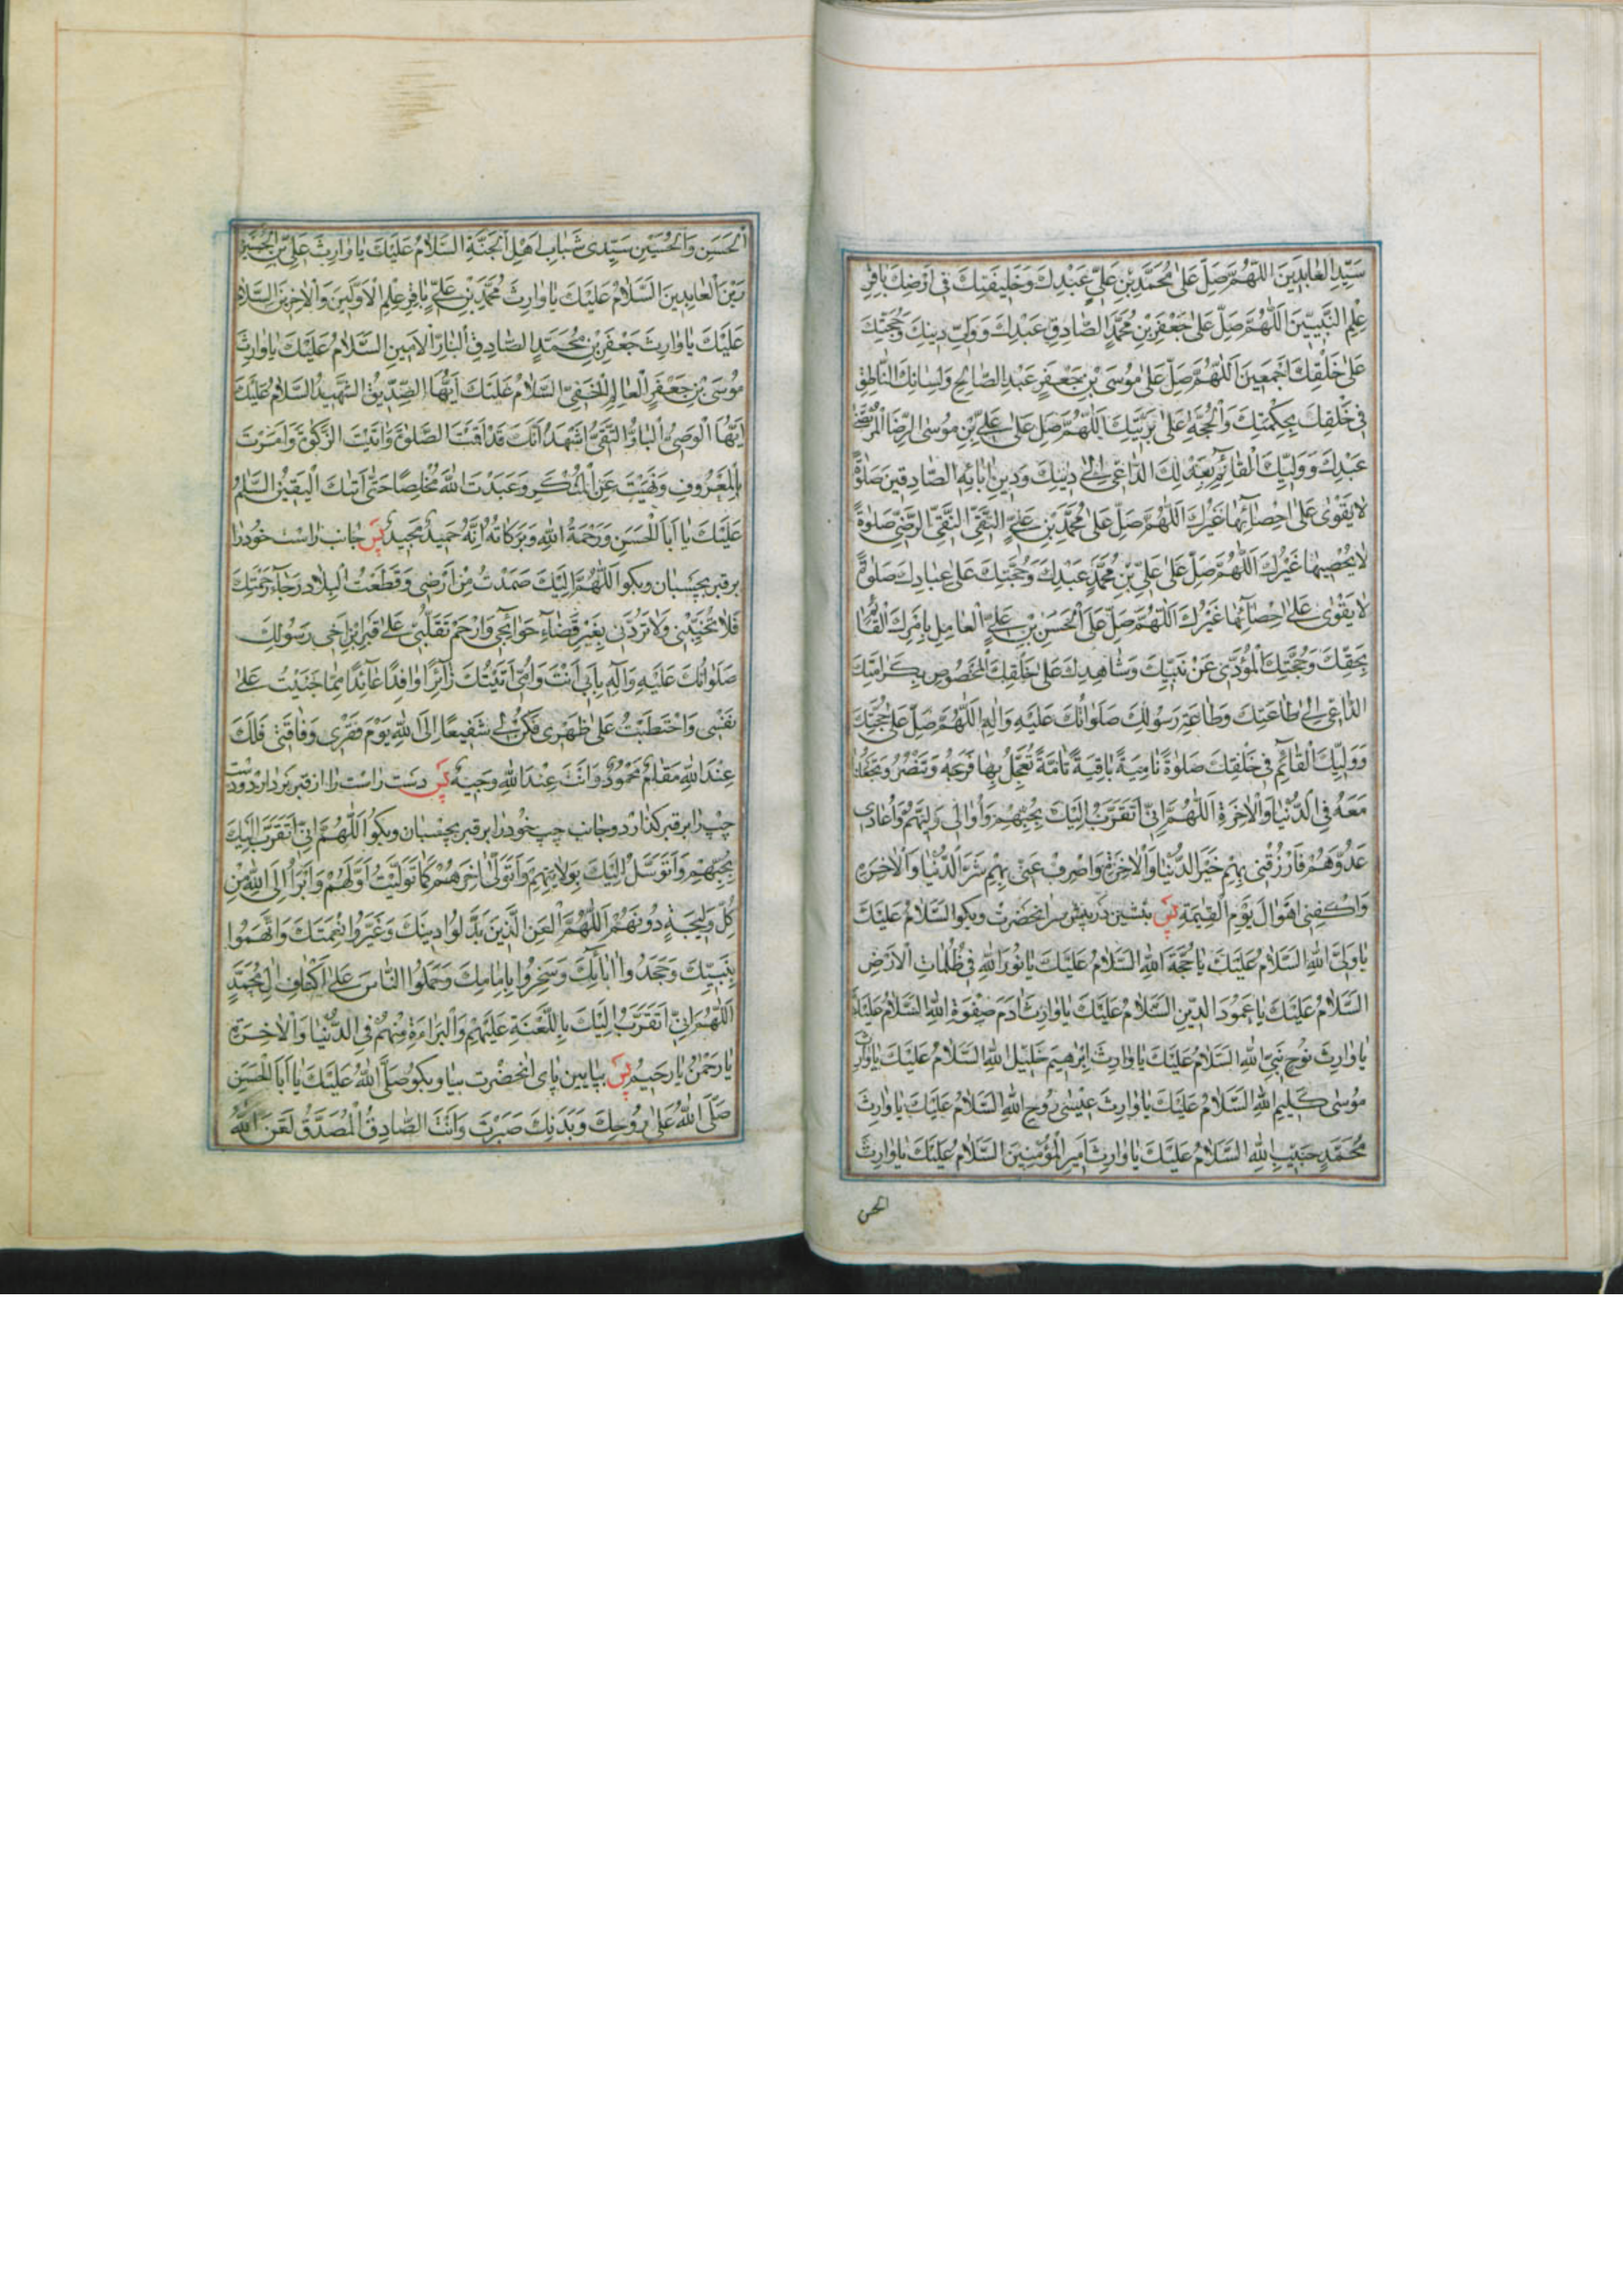 سَيِّدِ الْعابِدينَ اَللّهُمَّ صَلِّ عَلى مُحَمَّدِ بْنِ عَلِيٍّ عَبْدِكَ وَخَليفَتِكَ في اَرْضِكَ باقِرِ
عِلْمِ النَّبِيّينَ اَللّهُمَّ صَلِّ عَلى جَعْفَرِ بْنِ مُحَمَّدٍ الصّادِقِ عَبْدِكَ وَوَلِيِّ دينِكَ وَحُجَّتِكَ
عَلى خَلْقِكَ اَجْمَعينَ اَللّهُمَّ صَلِّ عَلى مُوسَى بْنِ جَعْفَرٍ عَبْدِ الصّالِحِ وَلِسانِكَ النّاطِقِ
في خَلْقِكَ بِحِكْمَتِكَ وَالْحُجَّةِ عَلى بَرِيَّتِكَ اَللّهُمَّ صَلِّ عَلى عَلِيِّ بْنِ مُوسَى الرِّضَا الْمُرْتَضى
عَبْدِكَ وَوَلِيِّكَ الْقائِمِ بِعَدْلِكَ الدّاعي اِلى دينِكَ وَدينِ ابائِهِ الصّادِقينَ صَلوةً
لا يَقْوى عَلى اِحْصائِها غَيْرُكَ اَللّهُمَّ صَلِّ عَلى مُحَمَّدِ بْنِ عَلِيٍّ التَّقِيِّ النَّقِيِّ الرَّضِيِّ صَلوةً
لا يُحْصيها غَيْرُكَ اَللّهُمَّ صَلِّ عَلى عَلِيِّ بْنِ مُحَمَّدٍ عَبْدِكَ وَحُجَّتِكَ عَلى عِبادِكَ صَلوةً
لا يَقْوى عَلى اِحْصائِها غَيْرُكَ اَللّهُمَّ صَلِّ عَلَى الْحَسَنِ بْنِ عَلِيٍّ الْعامِلِ بِاَمْرِكَ الْقائِمِ
بِحَقِّكَ وَحُجَّتِكَ الْمُؤَدّي عَنْ نَبِيِّكَ وَشاهِدِكَ عَلى خَلْقِكَ الْمَخْصُوصِ بِكَرامَتِكَ
الدّاعي اِلى طاعَتِكَ وَطاعَةِ رَسُولِكَ صَلَواتُكَ عَلَيْهِ وَالِهِ اَللّهُمَّ صَلِّ عَلى حُجَّتِكَ
وَوَلِيِّكَ الْقائِمِ في خَلْقِكَ صَلوةً نامِيَةً باقِيَةً تامَّةً تُعَجِّلُ بِها فَرَجَهُ وَتَنْصُرُهُ وَتَجْعَلُنا
مَعَهُ فِي الدُّنْيا وَالْاخِرَةِ اَللّهُمَّ اِنّي اَتَقَرَّبُ اِلَيْكَ بِحُبِّهِمْ وَاُوالي وَلِيَّهُمْ وَاُعادي
عَدُوَّهُمْ فَارْزُقْني بِهِمْ خَيْرَ الدُّنْيا وَالْاخِرَةِ وَاصْرِفْ عَنّي بِهِمْ شَرَّ الدُّنْيا وَالْاخِرَةِ
وَاكْفِني اَهْوالَ يَوْمِ الْقِيمَةِ پس بنشين در پيش سر انحضرت وبكو السَّلامُ عَلَيْكَ
يا وَلِيَّ اللهِ السَّلامُ عَلَيْكَ يا حُجَّةَ اللهِ السَّلامُ عَلَيْكَ يا نُورَ اللهِ في ظُلُماتِ الْاَرْضِ
السَّلامُ عَلَيْكَ يا عَمُودَ الدّينِ السَّلامُ عَلَيْكَ يا وارِثَ ادَمَ صِفْوَةِ اللهِ السَّلامُ عَلَيْكَ
يا وارِثَ نُوحٍ نَبِيِّ اللهِ السَّلامُ عَلَيْكَ يا وارِثَ اِبْرهيمَ خَليلِ اللهِ السَّلامُ عَلَيْكَ يا وارِثَ
مُوسى كَليمِ اللهِ السَّلامُ عَلَيْكَ يا وارِثَ عيسى رُوحِ اللهِ السَّلامُ عَلَيْكَ يا وارِثَ
مُحَمَّدٍ حَبيبِ اللهِ السَّلامُ عَلَيْكَ يا وارِثَ اَميرِ الْمُؤْمِنينَ السَّلامُ عَلَيْكَ يا وارِثَ
الحسن
الْحَسَنِ وَالْحُسَيْنِ سَيِّدَيْ شَبابِ اَهْلِ الْجَنَّةِ السَّلامُ عَلَيْكَ يا وارِثَ عَلِيِّ بْنِ الْحُسَيْنِ
زَيْنِ الْعابِدينَ السَّلامُ عَلَيْكَ يا وارِثَ مُحَمَّدِ بْنِ عَلِيٍّ باقِرِ عِلْمِ الْاَوَّلينَ وَالْاخِرينَ السَّلامُ
عَلَيْكَ يا وارِثَ جَعْفَرِ بْنِ مُحَمَّدٍ الصّادِقِ الْبارِّ الْاَمينِ السَّلامُ عَلَيْكَ يا وارِثَ
مُوسَى بْنِ جَعْفَرٍ الْعالِمِ الْحَفِيِّ السَّلامُ عَلَيْكَ اَيُّهَا الصِّدّيقُ الشَّهيدُ السَّلامُ عَلَيْكَ
اَيُّهَا الْوَصِيُّ الْبارُّ التَّقِيُّ اَشْهَدُ اَنَّكَ قَدْ اَقَمْتَ الصَّلوةَ وَاتَيْتَ الزَّكوةَ وَاَمَرْتَ
بِالْمَعْرُوفِ وَنَهَيْتَ عَنِ الْمُنْكَرِ وَعَبَدْتَ اللهَ مُخْلِصًا حَتّى اَتيكَ الْيَقينُ السَّلمُ
عَلَيْكَ يا اَبَا الْحَسَنِ وَرَحْمَةُ اللهِ وَبَرَكاتُهُ اِنَّهُ حَميدٌ مَجيدٌ پس جانب راست خود را
بر قبر بچسبان وبكو اَللّهُمَّ اِلَيْكَ صَمَدْتُ مِنْ اَرْضي وَقَطَعْتُ الْبِلادَ رَجاءَ رَحْمَتِكَ
فَلا تُخَيِّبْني وَلا تَرُدَّني بِغَيْرِ قَضاءِ حَوائِجي وَارْحَمْ تَقَلُّبي عَلى قَبْرِ ابْنِ اَخي رَسُولِكَ
صَلَواتُكَ عَلَيْهِ وَآلِهِ بِاَبي اَنْتَ وَاُمّي اَتَيْتُكَ زائِرًا وافِدًا عائِدًا مِمّا جَنَيْتُ عَلى
نَفْسي وَاحْتَطَبْتُ عَلى ظَهْري فَكُنْ لي شَفيعًا اِلَى اللهِ يَوْمَ فَقْري وَفاقَتي فَلَكَ
عِنْدَ اللهِ مَقامٌ مَحْمُودٌ وَاَنْتَ عِنْدَ اللهِ وَجيهٌ پس دست راست را از قبر بردارد ودست
چپ را بر قبر كذارد وجانب چپ خود را بر قبر بچسبان وبكو اَللّهُمَّ اِنّي اَتَقَرَّبُ اِلَيْكَ
بِحُبِّهِمْ وَاَتَوَسَّلُ اِلَيْكَ بِوَلايَتِهِمْ وَاَتَوَلّى اخِرَهُمْ كَما تَوَلَّيْتُ اَوَّلَهُمْ وَاَبْرَاُ اِلَى اللهِ مِنْ
كُلِّ وَليجَةٍ دُونَهُمْ اَللّهُمَّ الْعَنِ الَّذينَ بَدَّلُوا دينَكَ وَغَيَّرُوا نِعْمَتَكَ وَاتَّهَمُوا
نَبِيَّكَ وَجَحَدُوا ابائِكَ وَسَخِرُوا بِاِمامِكَ وَحَمَلُوا النّاسَ عَلى اَكْتافِ الِ مُحَمَّدٍ
اَللّهُمَّ اِنّي اَتَقَرَّبُ اِلَيْكَ بِاللَّعْنَةِ عَلَيْهِمْ وَالْبَراءَةِ مِنْهُمْ فِي الدُّنْيا وَالْاخِرَةِ
يا رَحْمنُ يا رَحيمُ پس بپايين پاى انحضرت بيا وبكو صَلَّى اللهُ عَلَيْكَ يا اَبَا الْحَسَنِ
صَلَّى اللهُ عَلى رُوحِكَ وَبَدَنِكَ صَبَرْتَ وَاَنْتَ الصّادِقُ الْمُصَدَّقُ لَعَنَ اللهُ